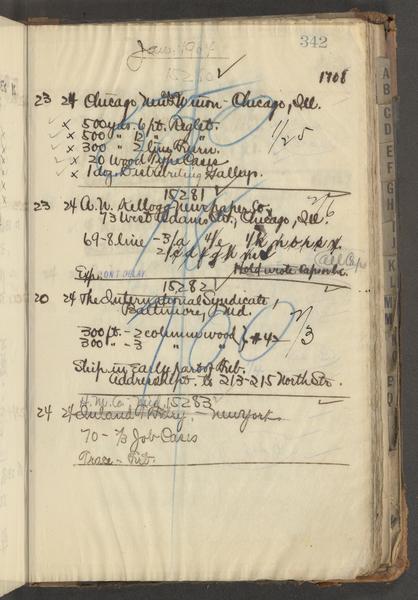 342
Jan. 1908
15280
1908
23 24 Chicago News Union - Chicago, Ill.
x 500 yds. 6 pt. Reglet. 1/25
x 500 " 12 " "
x 300 " 2 line Furn.
x 20 Wood Type Cases
x 1 doz. Distributing Galleys.
15281
23 24 A. N. Kellogg Newspaper Co.,
73 West Adams St., Chicago, Ill.
69-8 line - 3/a 4/e
Exp. DONT DELAY
15282
20 24 The International Syndicate,
Baltimore, Md.
300 ft. - 2 column wood } #42
300 " - 3 " "
Ship in Early part of Feb.
Address dept. to 213-215 North St.
H. M. Co. 15283
24 24 Inland - New York
70 - 2/3 Job Cases
Trace - Feb.